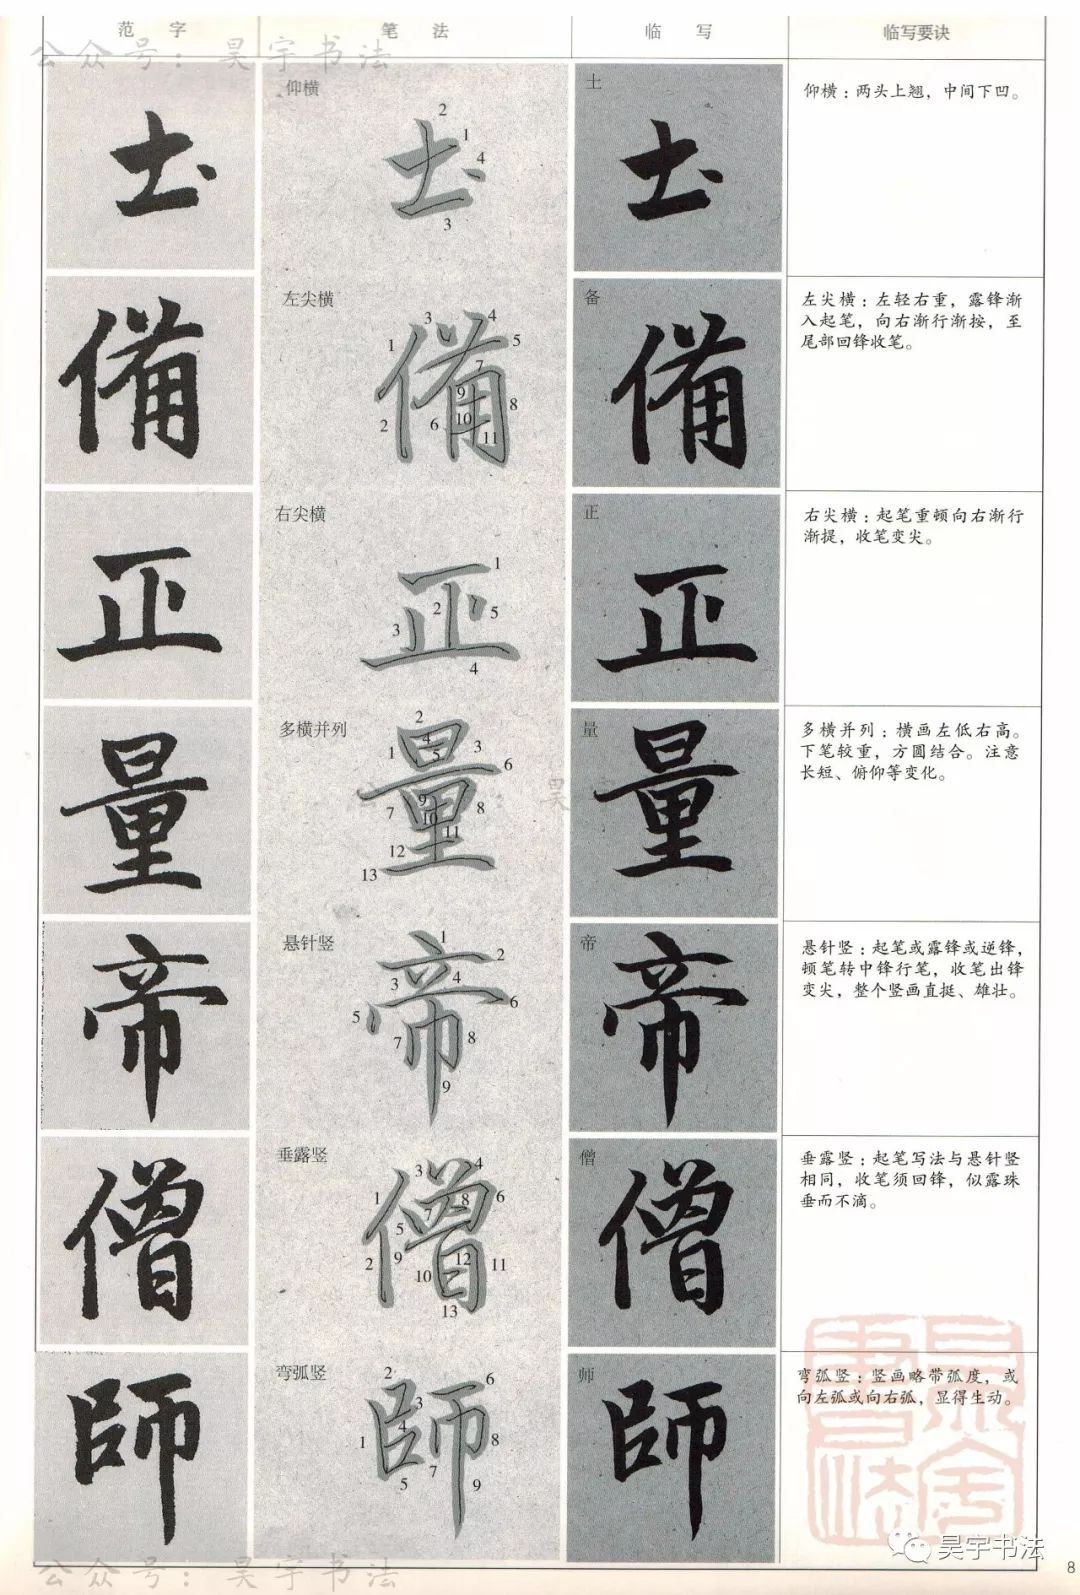 范 字 笔 法 临 写 临写要诀
公众号：昊宇书法
仰横
土
仰横：两头上翘，中间下凹。
土
2
1
4
土
3
土
左尖横
备
左尖横：左轻右重，露锋渐
入起笔，向右渐行渐按，至
尾部回锋收笔。
備
3
4
1
5
7
備
9
8
2
6
10
11
備
右尖横
正
右尖横：起笔重顿向右渐行
渐提，收笔变尖。
正
1
2
5
3
正
4
正
多横并列
量
多横并列：横画左低右高。
下笔较重，方圆结合。注意
长短、俯仰等变化。
量
2
4
3
1
5
6
量
9
8
7
10
11
12
13
量
昊
悬针竖
帝
悬针竖：起笔或露锋或逆锋，
顿笔转中锋行笔，收笔出锋
变尖，整个竖画直挺、雄壮。
帝
1
2
3
4
6
5
帝
7
8
9
帝
垂露竖
僧
垂露竖：起笔写法与悬针竖
相同，收笔须回锋，似露珠
垂而不滴。
僧
3
4
1
8
6
7
5
僧
2
9
12
11
10
13
僧
弯弧竖
师
弯弧竖：竖画略带弧度，或
向左弧或向右弧，显得生动。
師
2
6
3
4
1
8
師
5
7
9
師
昊宇书法
公众号：昊宇书法
8